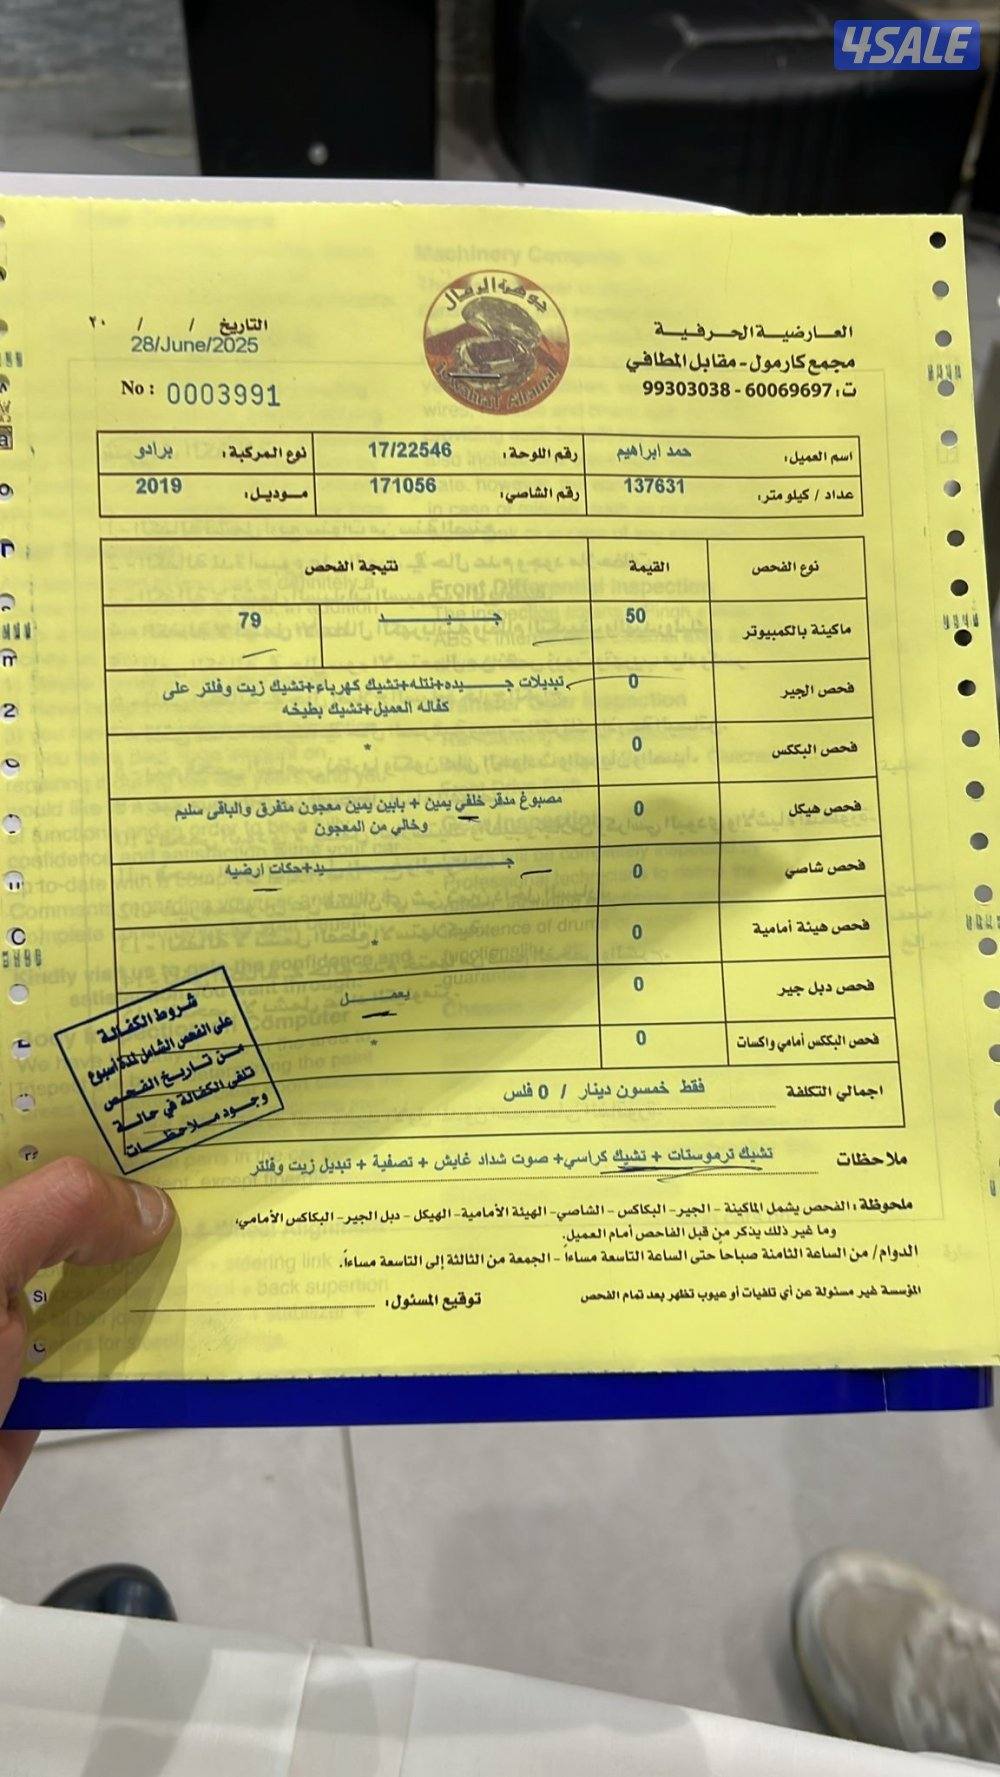 4SALE
جوهرة الرمال
Jawharat Alramal
العارضية الحرفية
مجمع كارمول - مقابل المطافي
ت: 60069697 - 99303038
التاريخ / / ٢٠
28/June/2025
No : 0003991
اسم العميل: حمد ابراهيم رقم اللوحة: 17/22546 نوع المركبة: برادو
عداد / كيلو متر: 137631 رقم الشاصي: 171056 موديل: 2019
نوع الفحص القيمة نتيجة الفحص
ماكينة بالكمبيوتر 50 جيد 79
فحص الجير 0 تبديلات جيده+نتله+تشيك كهرباء+تشيك زيت وفلتر على
كفاله العميل+تشيك بطيخه
فحص البككس 0 *
فحص هيكل 0 مصبوغ مدقر خلفي يمين + بابين يمين معجون متفرق والباقى سليم
وخالي من المعجون
فحص شاصي 0 جيد+حكات ارضيه
فحص هيئة أمامية 0 *
فحص دبل جير 0 يعمل
فحص البككس أمامي واكسات 0 *
اجمالي التكلفة فقط خمسون دينار / 0 فلس
شروط الكفالة
على الفحص الشامل لمدة أسبوع
من تاريخ الفحص
تلغى الكفالة في حالة
وجود ملاحظات
ملاحظات تشيك ترموستات + تشيك كراسي+ صوت شداد غايش + تصفية + تبديل زيت وفلتر
ملحوظة: الفحص يشمل الماكينة - الجير- البكاكس - الشاصي- الهيئة الأمامية- الهيكل - دبل الجير- البكاكس الأمامي،
وما غير ذلك يذكر من قبل الفاحص أمام العميل.
الدوام/ من الساعة الثامنة صباحا حتى الساعة التاسعة مساءاً - الجمعة من الثالثة إلى التاسعة مساءاً.
المؤسسة غير مسئولة عن أي تلفيات أو عيوب تظهر بعد تمام الفحص
توقيع المسئول: